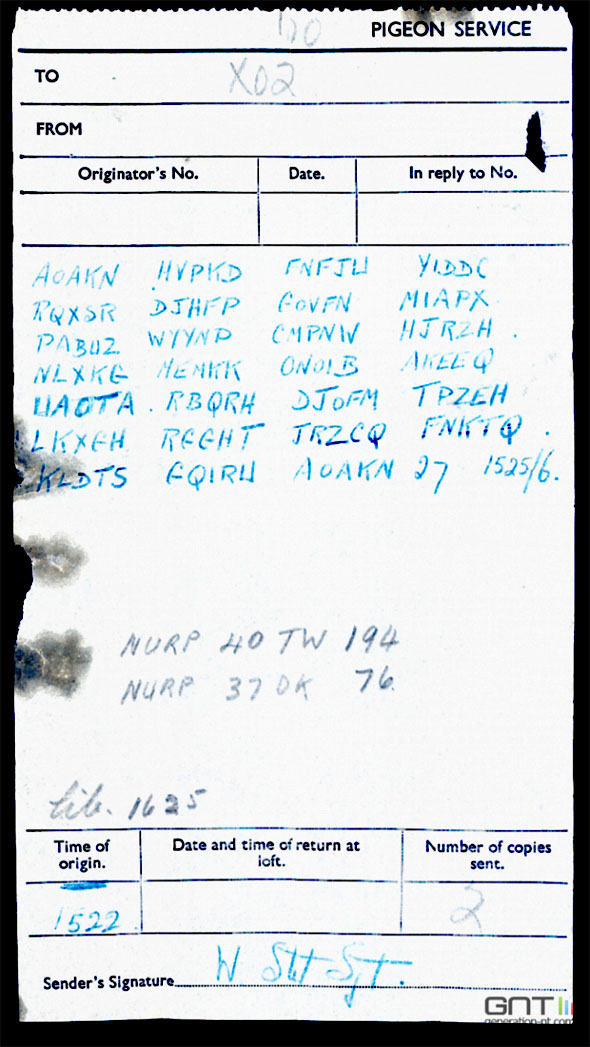 PIGEON SERVICE
TO X02
FROM
Originator's No. Date. In reply to No.
AOAKN HVPKD FNFJU YIDDC
RQXSR DJHFP GOVFN MIAPX
PABUZ WYYNP CMPNW HJRZH .
NLXKG MEMKK ONOIB AKEEQ
UAOTA . RBQRH DJOFM TPZEH
LKXGH RGGHT JRZCQ FNKTQ .
KLDTS GQIRU AOAKN 27 1525/6.
NURP 40 TW 194
NURP 37 DK 76.
lib. 1625
Time of origin. Date and time of return at loft. Number of copies sent.
1522 2
Sender's Signature W Stot Sjt.
GNT
generation-nt.com